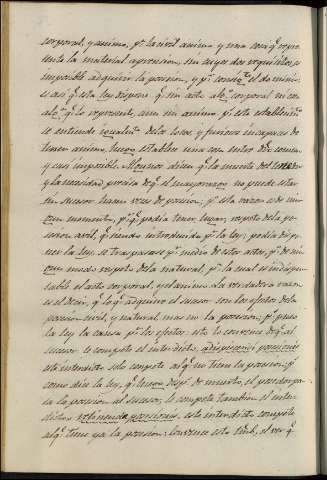 corporal, y animo, pª la civil animo y una cosa qº repre
sente la material aprension, sin cuyos dos requisitos es
imposible adquirir la posesion, y pr. consigte. el dominio:
es asi qº esta ley dispone qº sin acto algº corporal ni co
sa algª qº lo represente, aun sin animo pª esto establecim
se entiende igualmte. de los locos, y furiosos incapaces de
tener animo, luego establece una cosa entre dro. comun,
y casi imposible. Algunos dicen qº la muerte del
y la necesidad precisa de qº el mayorazgo no puede estar
sin sucesor hacen veces de posesion; pº esta razon es de nin
gun momento, pr. qº podia tener lugar respeto de la po
sesion civil, qº siendo introducida pr. la ley, podia dispo
ner la ley, se traspasase pr. medio de estos actos, pº de nin
gun modo respeto de la natural, pª la cual es indispen
sable el acto corporal, y el animo. La verdadera razon
es el decir, qº lo qº adquiere el sucesor son los efectos de la
posesion civil, y natural, mas no la posesion; pº pone
la ley la causa pr. los efectos: esto se convence de qº al
sucesor le compete el interdicto adipiscendi posesionis
este interdicto solo compete al qº no tiene la posesion; pº
como dice la ley, qº luego despº de muerto el poseedor pa
sa la posesion al sucesor, le compete tambien el inter
dicto retinendæ posesionis, este interdicto compete
al qº tiene ya la posesion: convence esto tambº, el ver qº